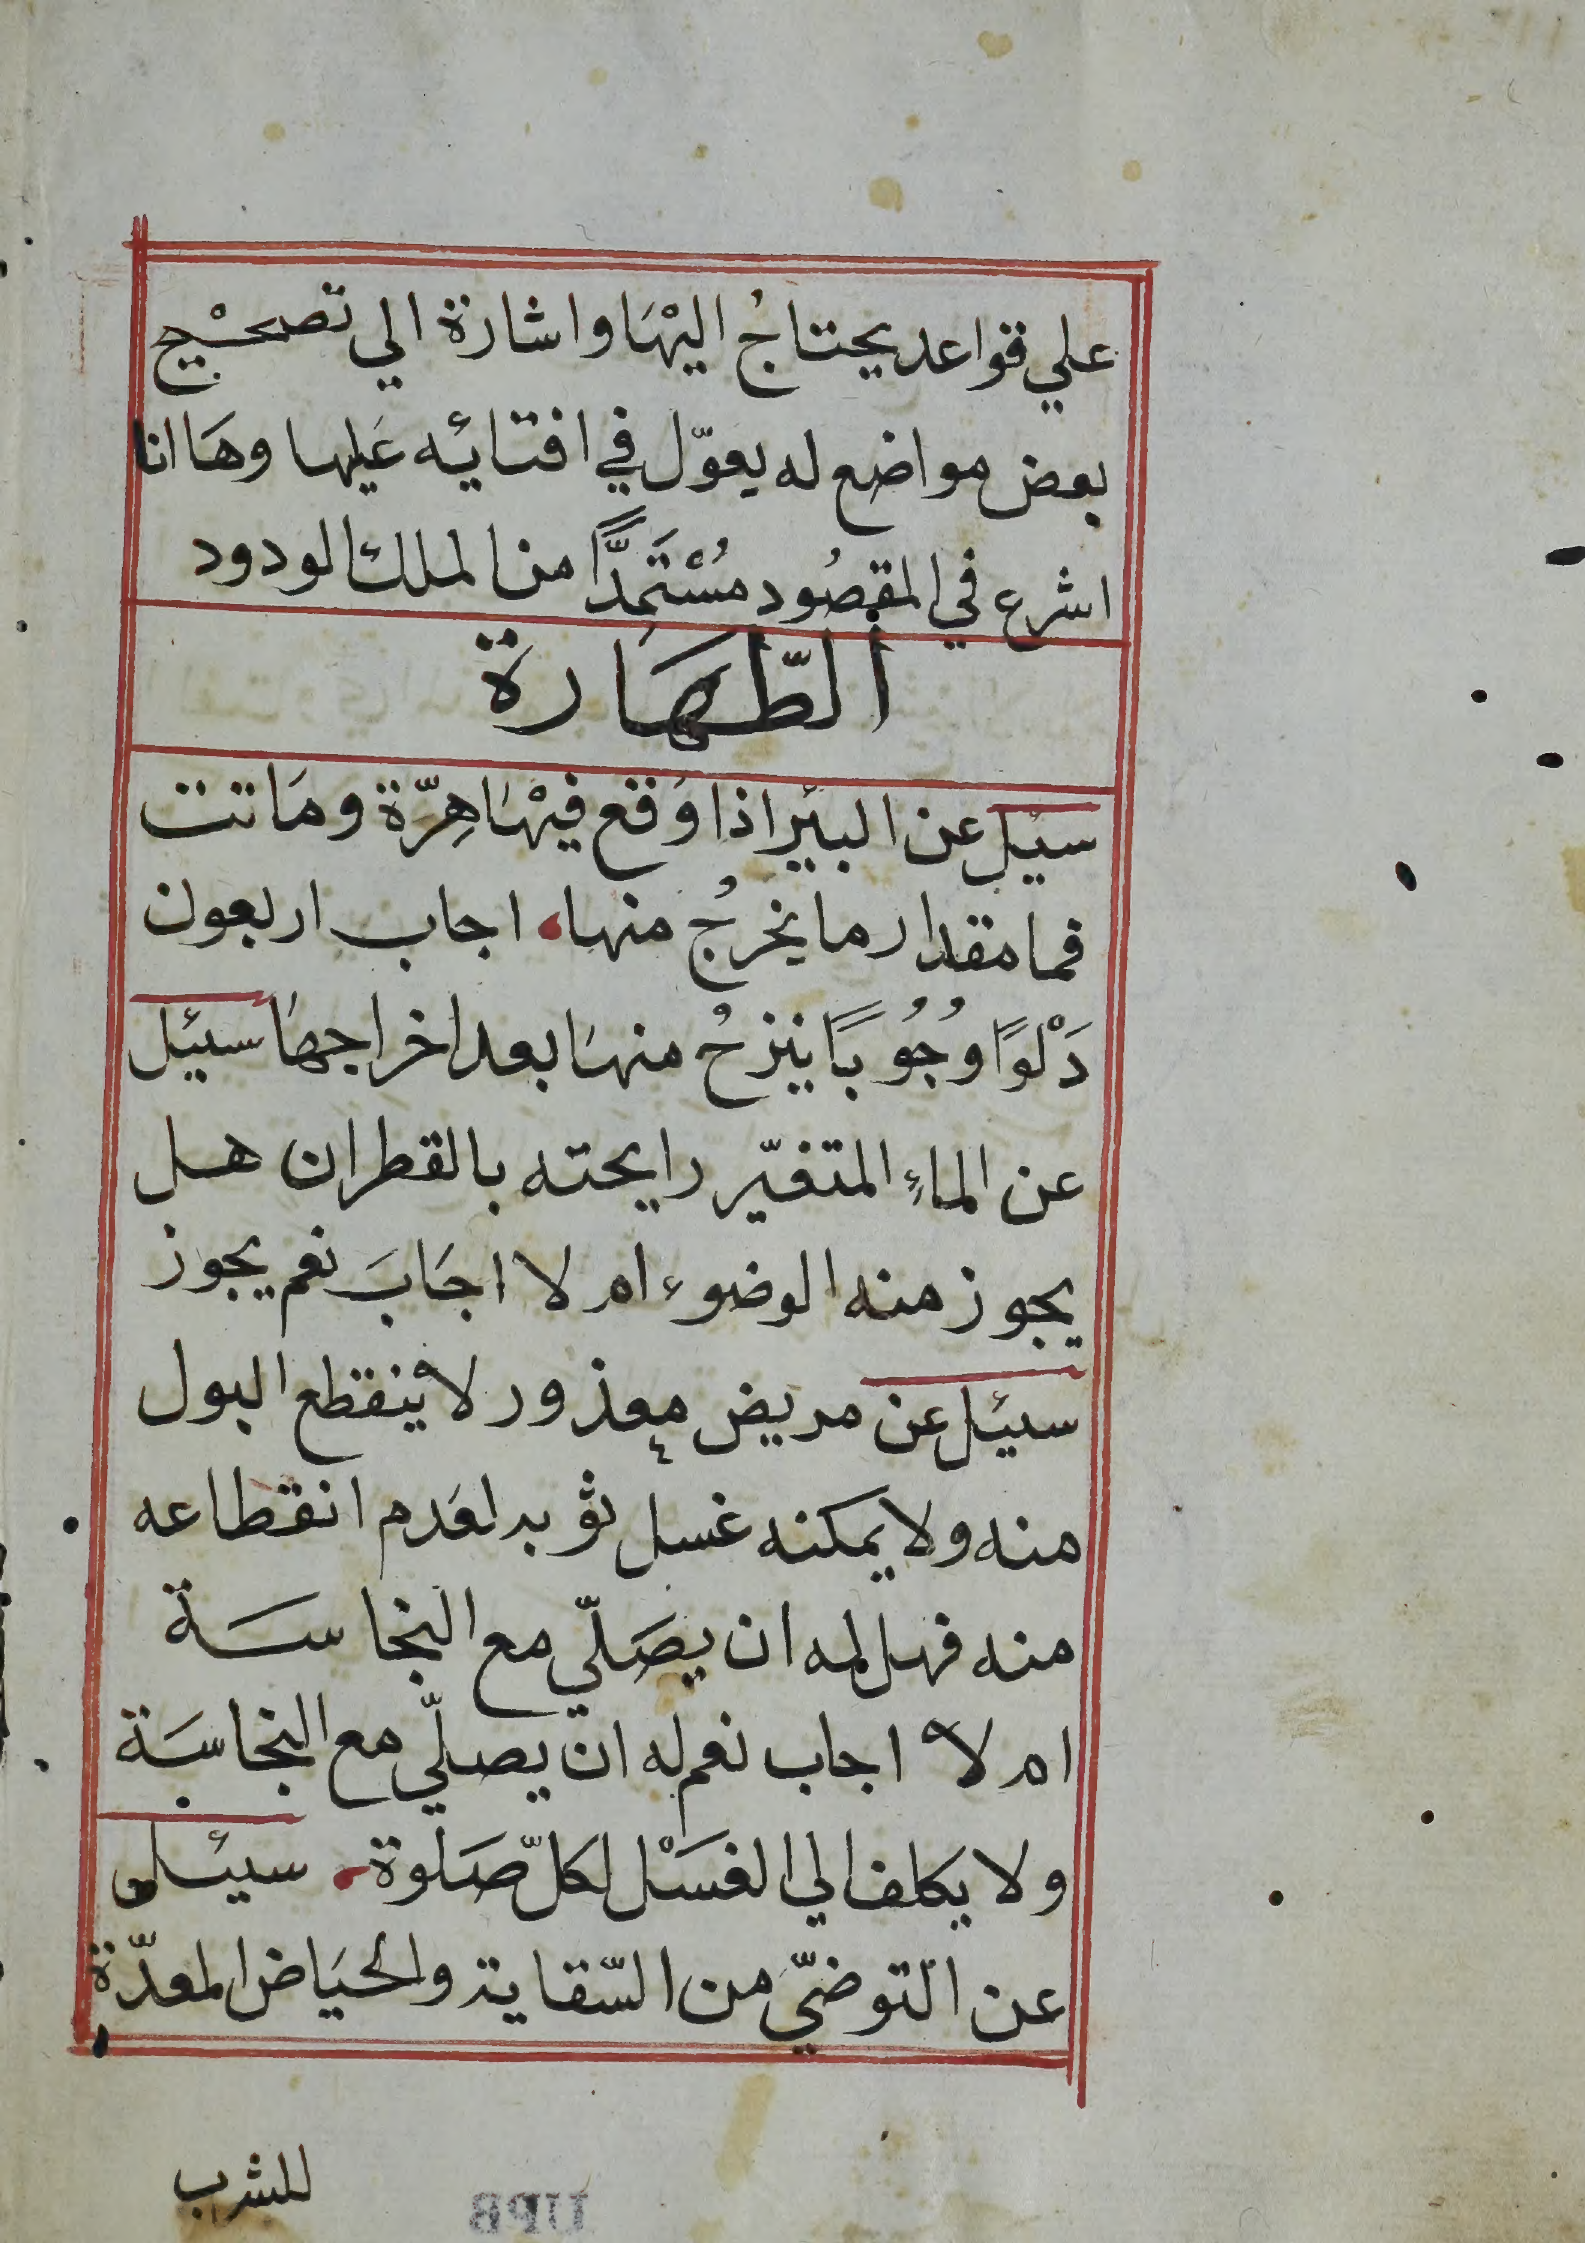 علي قواعد يحتاجُ اليْهَا واشارة الي تصحيْح
بعض مواضع له يعوّل في افتائه عَليها وهَا انا
اشرع في المقصُود مُسْتَمِدًّا من الملك الودود
الطّهَارة
سئل عن البئر اذا وَقع فيْهَا هِرّة ومَاتت
فما مقدار ما يخرجُ منها، اجاب اربعون
دَلْوًا وجُوُبًا ينزحُ منهَا بعد اخراجهَا سئل
عن الماءِ المتغيّر رايحته بالقطران هل
يجوز منه الوضوء ام لا اجَابَ نعم يجوز
سئل عن مريض معذور لا ينقطع البول
منه ولا يمكنه غسل ثوبه لعَدم انقطاعه
منه فهل له ان يصَلّي مع النجاسَة
ام لا اجاب نعم له ان يصلّي مع النجاسَة
ولا يكلف الي الغسْل لكلّ صَلوة، سئل
عن التوضّي من السّقاية والحيَاض المعدّة
للشرب
UPB